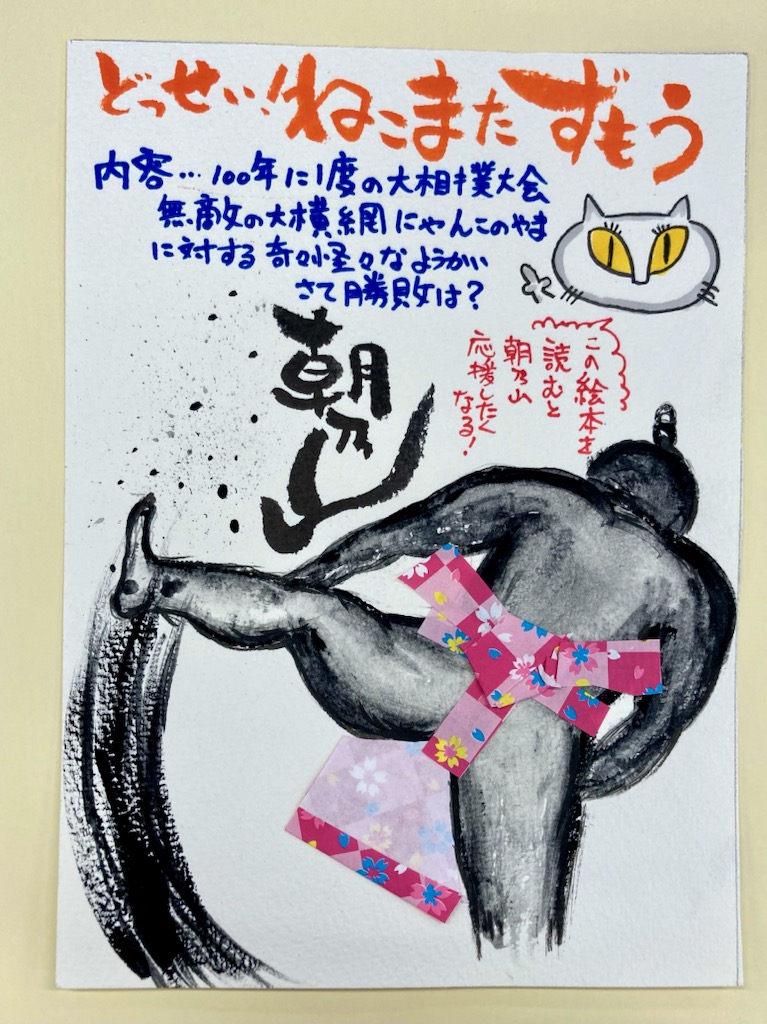 どっせい！ねこまたずもう
内容…100年に1度の大相撲大会
無敵の大横綱にゃんこのやま
に対する奇々怪々なようかい
さて勝敗は？
この絵本を
読むと
朝乃山
応援したく
なる！
朝乃山